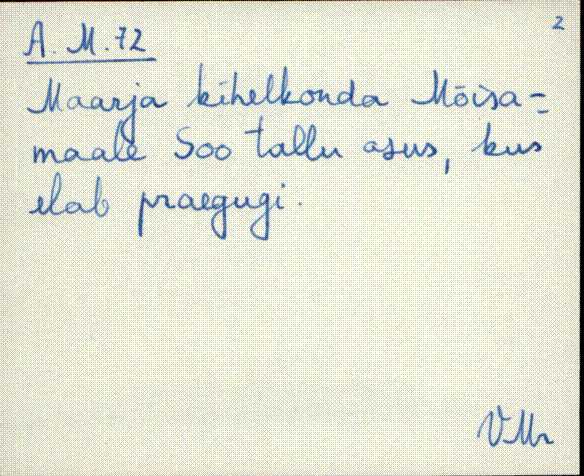 2
A. M. 72
Maarja kihelkonda Mõisa=
maale Soo tallu asus, kus
elab praegugi.
VMr